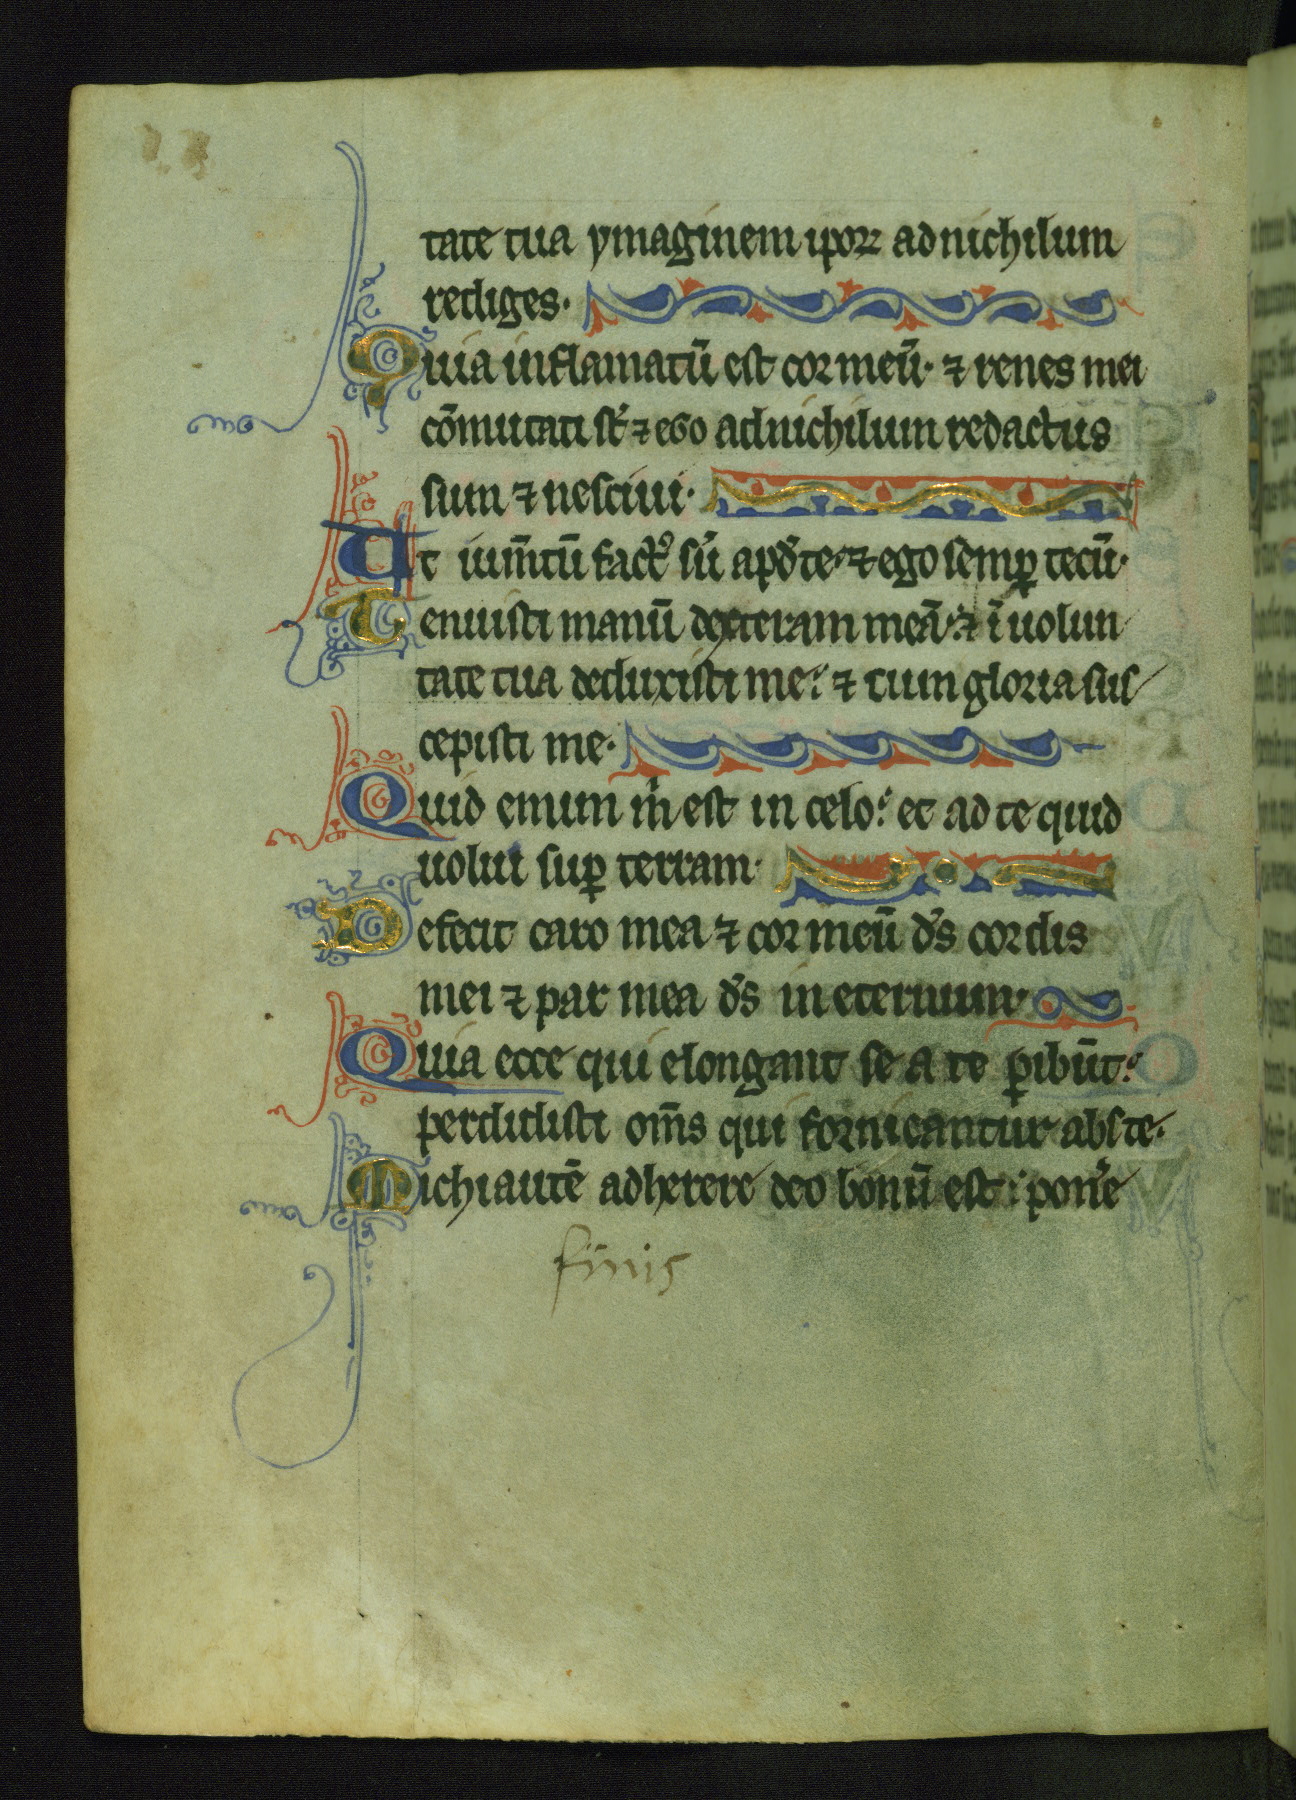 tate tua ymaginem ipoꝝ ad nichilum
rediges·
Quia inflamatū est cor meū· ⁊ renes mei
cōmutati st̄ ⁊ ego ad nichilum redactus
sum ⁊ nesciui·
Ut ium̄tū factꝰ sū apd̄ te· ⁊ ego semꝑ tecū·
Tenuisti manū dexteram meā· ⁊ ī uolun
tate tua deduxisti me: ⁊ cum gloria sus
cepisti me·
Quid enim m̄ est in celo: et ad te quid
uolui suꝑ terram·
Defecit caro mea ⁊ cor meū ds̄ cordis
mei ⁊ par mea ds̄ in eternum·
Quia ecce qui elongant se a te ꝑibūt:
perdidisti om̄s qui fornicantur abs te·
Michi autē adherere deo bonū est: pon̄e
finis